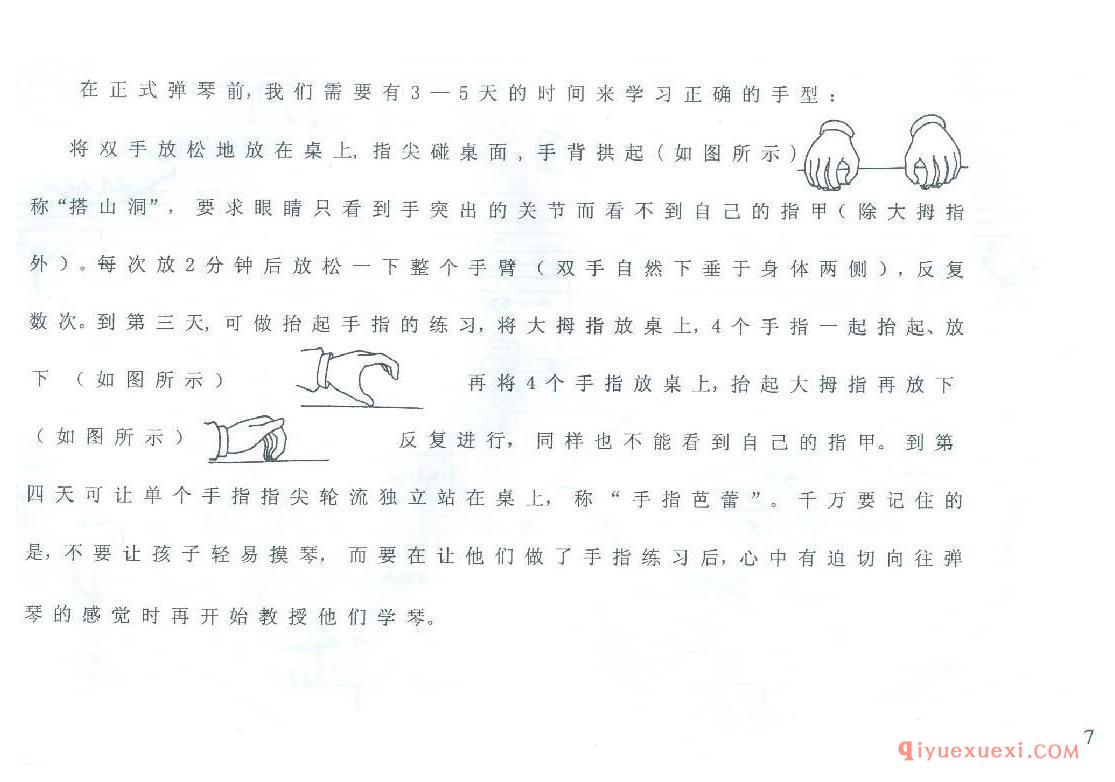 在正式弹琴前,我们需要有3—5天的时间来学习正确的手型:
将双手放松地放在桌上,指尖碰桌面,手背拱起(如图所示)
称“搭山洞”,要求眼睛只看到手突出的关节而看不到自己的指甲(除大拇指
外)。每次放2分钟后放松一下整个手臂(双手自然下垂于身体两侧),反复
数次。到第三天,可做抬起手指的练习,将大拇指放桌上,4个手指一起抬起、放
下(如图所示) 再将4个手指放桌上,抬起大拇指再放下
(如图所示) 反复进行,同样也不能看到自己的指甲。到第
四天可让单个手指指尖轮流独立站在桌上,称“手指芭蕾”。千万要记住的
是,不要让孩子轻易摸琴,而要在让他们做了手指练习后,心中有迫切向往弹
琴的感觉时再开始教授他们学琴。
7
Qiyuexuexi.COM